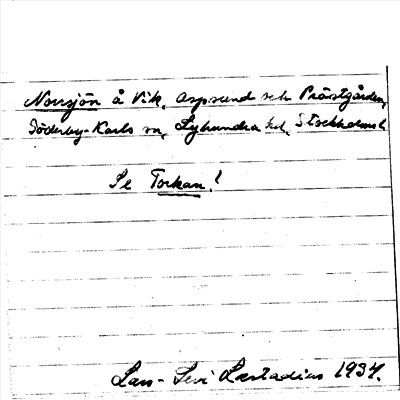 Norrsjön å Vik, Aspsund och Prästgården,
Söderby-Karls sn, Lyhundra hd, Stockholms l
Se Torkan!
Lars-Levi Læstadius 1934.